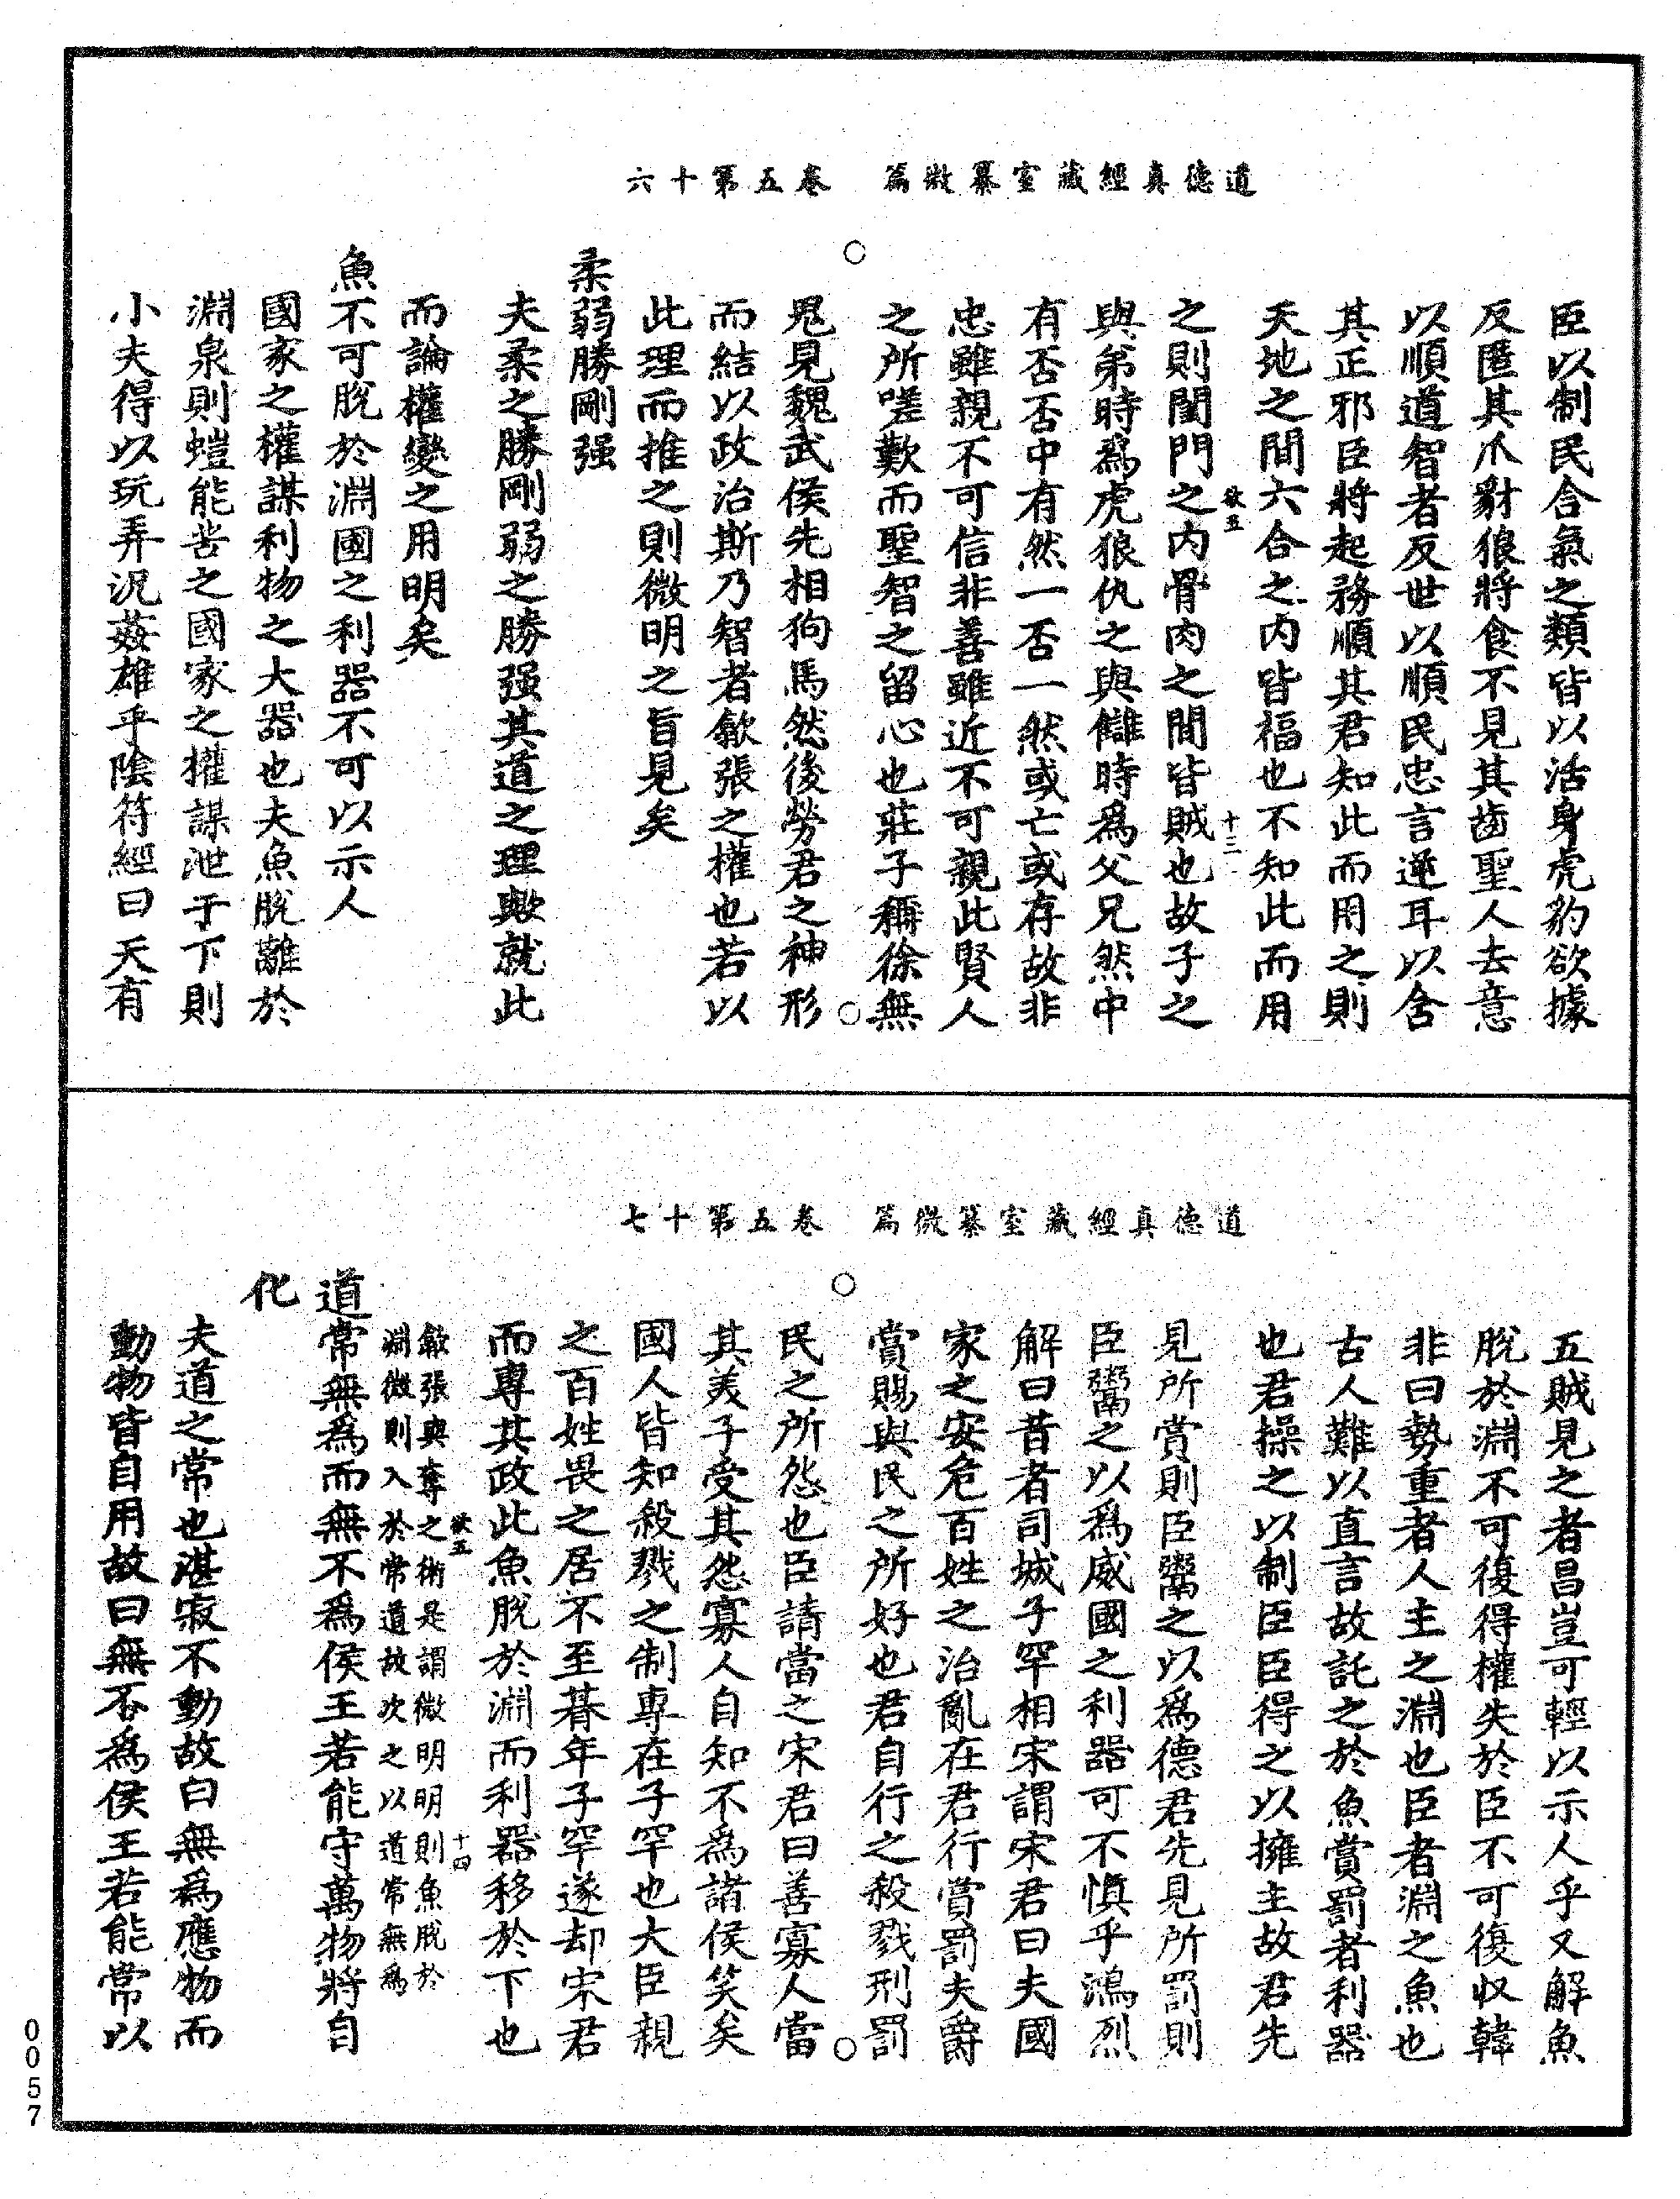 道德真經藏室纂微篇　卷五第十六
臣以制民含氣之類皆以活身虎豹欲據
反匿其爪豺狼將食不見其齒聖人去意
以順道智者反世以順民忠言逆耳以含
其正邪臣將起務順其君知此而用之則
天地之間六合之内皆福也不知此而用
欲五　十三
之則閨門之内骨肉之間皆賊也故子之
與弟時爲虎狼仇之與讎時爲父兄然中
有否否中有然一否一然或亡或存故非
忠雖親不可信非善雖近不可親此賢人
之所嗟歎而聖智之留心也莊子稱徐無
鬼見魏武侯先相狗馬然後勞君之神形
而結以政治斯乃智者歙張之權也若以
此理而推之則微明之旨見矣
柔弱勝剛强
夫柔之勝剛弱之勝强其道之理歟就此
而論權變之用明矣
魚不可脫於淵國之利器不可以示人
國家之權謀利物之大器也夫魚脫離於
淵泉則螘能苦之國家之權謀泄于下則
小夫得以玩弄況姦雄乎陰符經曰天有
道德真經藏室纂微篇　卷五第十七
五賊見之者昌豈可輕以示人乎又解魚
脫於淵不可復得權失於臣不可復收韓
非曰勢重者人主之淵也臣者淵之魚也
古人難以直言故託之於魚賞罰者利器
也君操之以制臣臣得之以擁主故君先
見所賞則臣鬻之以爲德君先見所罰則
臣鬻之以爲威國之利器可不慎乎鴻烈
解曰昔者司城子罕相宋謂宋君曰夫國
家之安危百姓之治亂在君行賞罰夫爵
賞賜與民之所好也君自行之殺戮刑罰
民之所怨也臣請當之宋君曰善寡人當
其美子受其怨寡人自知不爲諸侯笑矣
國人皆知殺戮之制專在子罕也大臣親
之百姓畏之居不至朞年子罕遂却宋君
而專其政此魚脫於淵而利器移於下也
欲五　十四
歙張與奪之術是謂微明明則魚脫於
淵微則入於常道故次之以道常無爲
道常無爲而無不爲侯王若能守萬物將自
化
夫道之常也湛寂不動故曰無爲應物而
動物皆自用故曰無不爲侯王若能常以
0057